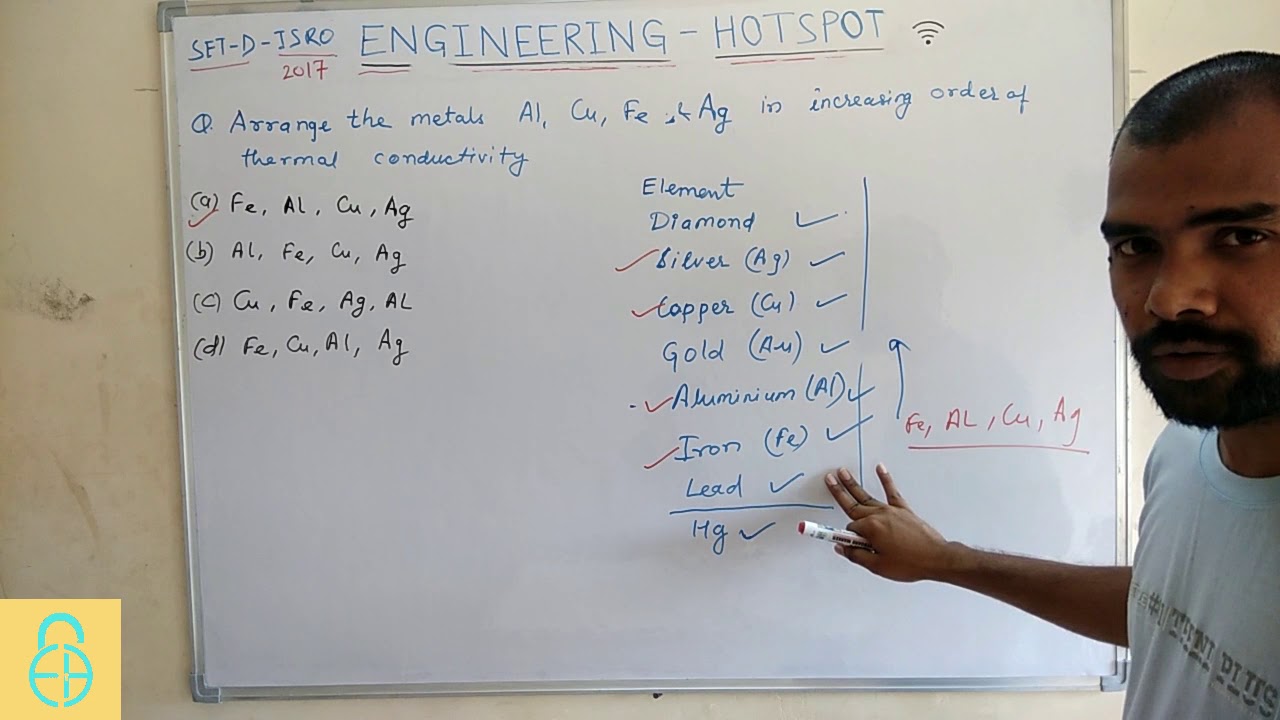 SET-D-ISRO
2017
ENGINEERING - HOTSPOT
Q. Arrange the metals Al, Cu, Fe & Ag in increasing order of
thermal conductivity
(a) Fe, Al, Cu, Ag
(b) Al, Fe, Cu, Ag
(c) Cu, Fe, Ag, AL
(d) Fe, Cu, Al, Ag
Element
Diamond
Silver (Ag)
Copper (Cu)
Gold (Au)
Aluminium (Al)
Iron (Fe)
Lead
Hg
Fe, AL, Cu, Ag